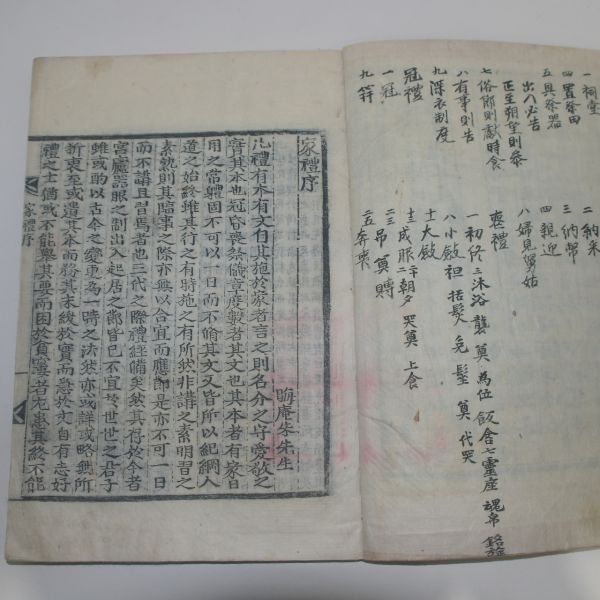 一祠堂
四置祭田
五具祭器
出入必告
正至朔望則參
七俗節則獻時食
八有事則告
九深衣制度
冠禮
一冠
九笄
二納采
三納幣
四親迎
八婦見舅姑
喪禮
一初終 二沐浴 襲 奠 為位 飯含 七靈座 魂帛 銘旌
八小斂 袒 括髮 免 髽 奠 代哭
十大斂
十二成服 二十朝夕哭奠 上食
二三吊奠賻
二五奔喪
家禮序
晦庵朱先生
凡禮有本有文自其施於家者言之則名分之守愛敬之
實其本也冠昏喪祭儀章度數者其文也其本者有家日
用之常軆固不可以一日而不脩其文又皆所以紀綱人
道之始終雖其行之有時施之有所然非講之素明習之
素熟則其臨事之際亦無以合宜而應節是亦不可一日
而不講且習焉者也三代之際禮經備矣然其存於今者
宮廬器服之制出入起居之節皆已不宜於世世之君子
雖或酌以古今之變更為一時之法然亦或詳或略無所
折衷至或遺其本而務其末緩於實而急於文自有志好
禮之士猶或不能舉其要而困於貧窶者尤患其終不能
家禮序